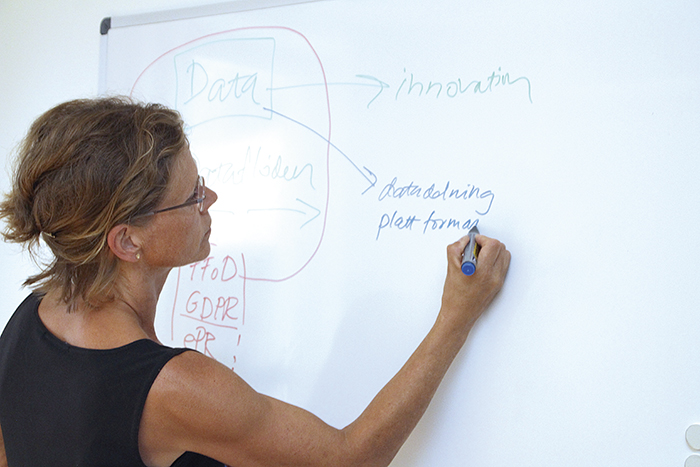 Data
innovation
datadelning
plattformar
FFoD
GDPR
ePR